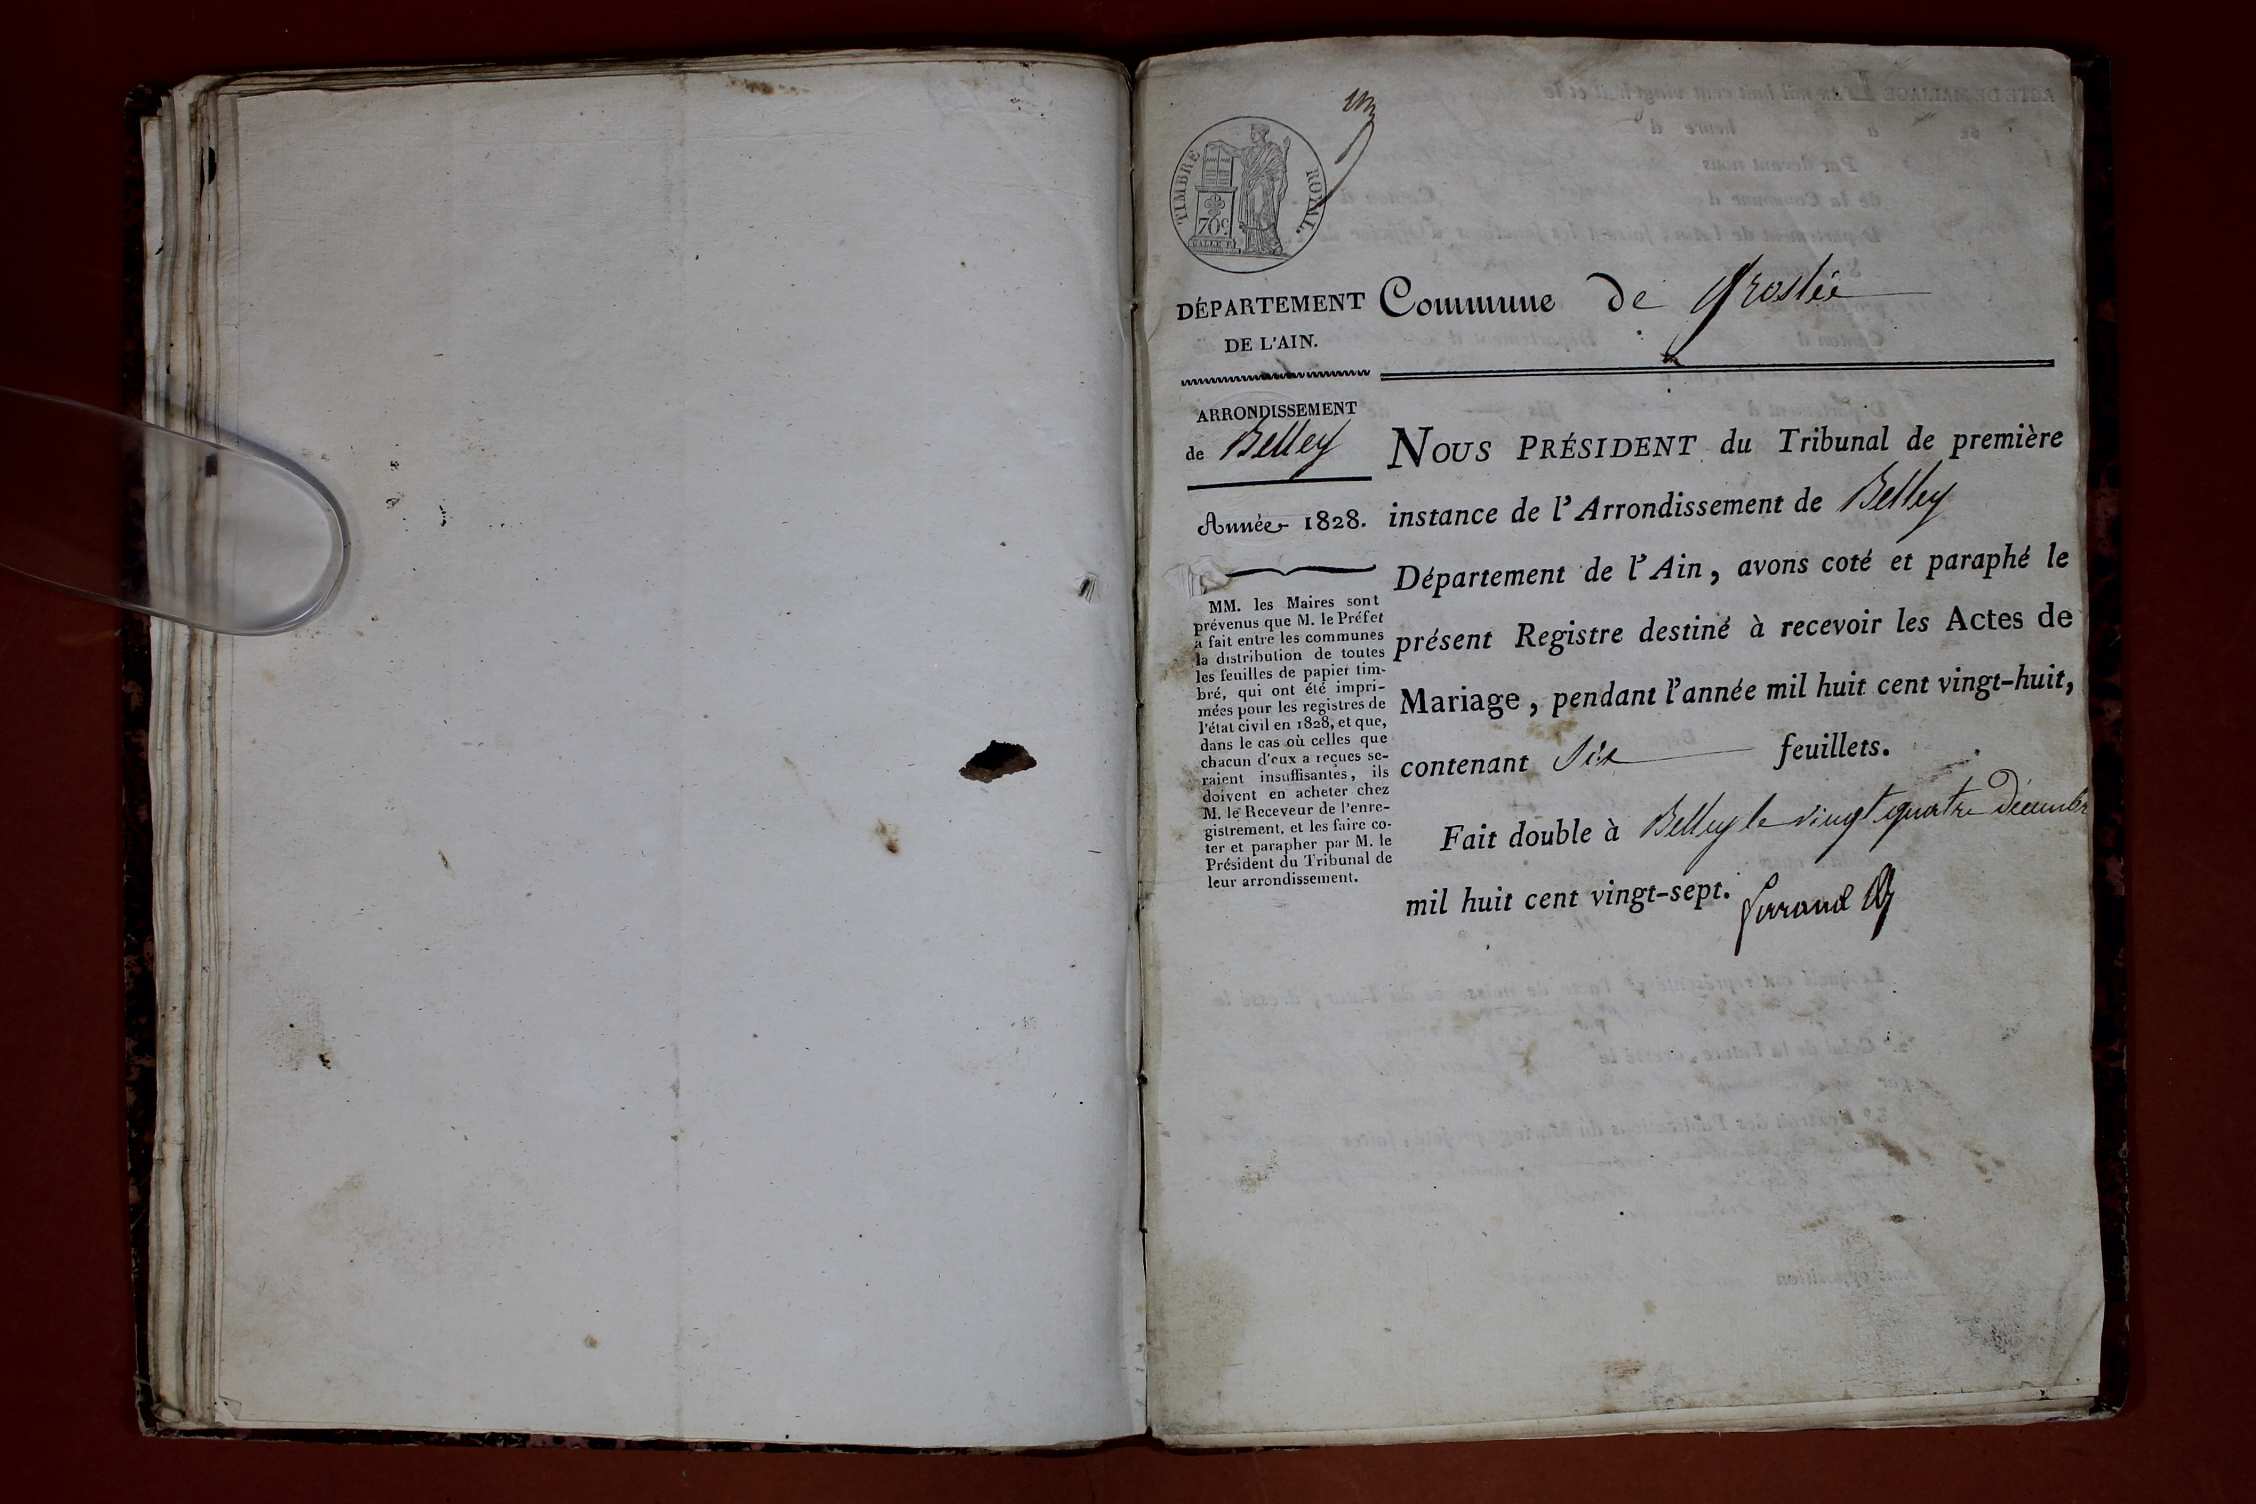 TIMBRE ROYAL.
70c
DÉPARTEMENT
DE L'AIN.
Commune de Groslée
ARRONDISSEMENT
de Belley
Année 1828.
MM. les Maires sont
prévenus que M. le Préfet
a fait entre les communes
la distribution de toutes
les feuilles de papier tim-
bré, qui ont été impri-
mées pour les registres de
l'état civil en 1828, et que,
dans le cas où celles que
chacun d'eux a reçues se-
raient insuffisantes, ils
doivent en acheter chez
M. le Receveur de l'enre-
gistrement, et les faire co-
ter et parapher par M. le
Président du Tribunal de
leur arrondissement.
NOUS PRÉSIDENT du Tribunal de première
instance de l'Arrondissement de Belley
Département de l'Ain, avons coté et paraphé le
présent Registre destiné à recevoir les Actes de
Mariage, pendant l'année mil huit cent vingt-huit,
contenant Six feuillets.
Fait double à Belley le vingt quatre Décembre
mil huit cent vingt-sept.